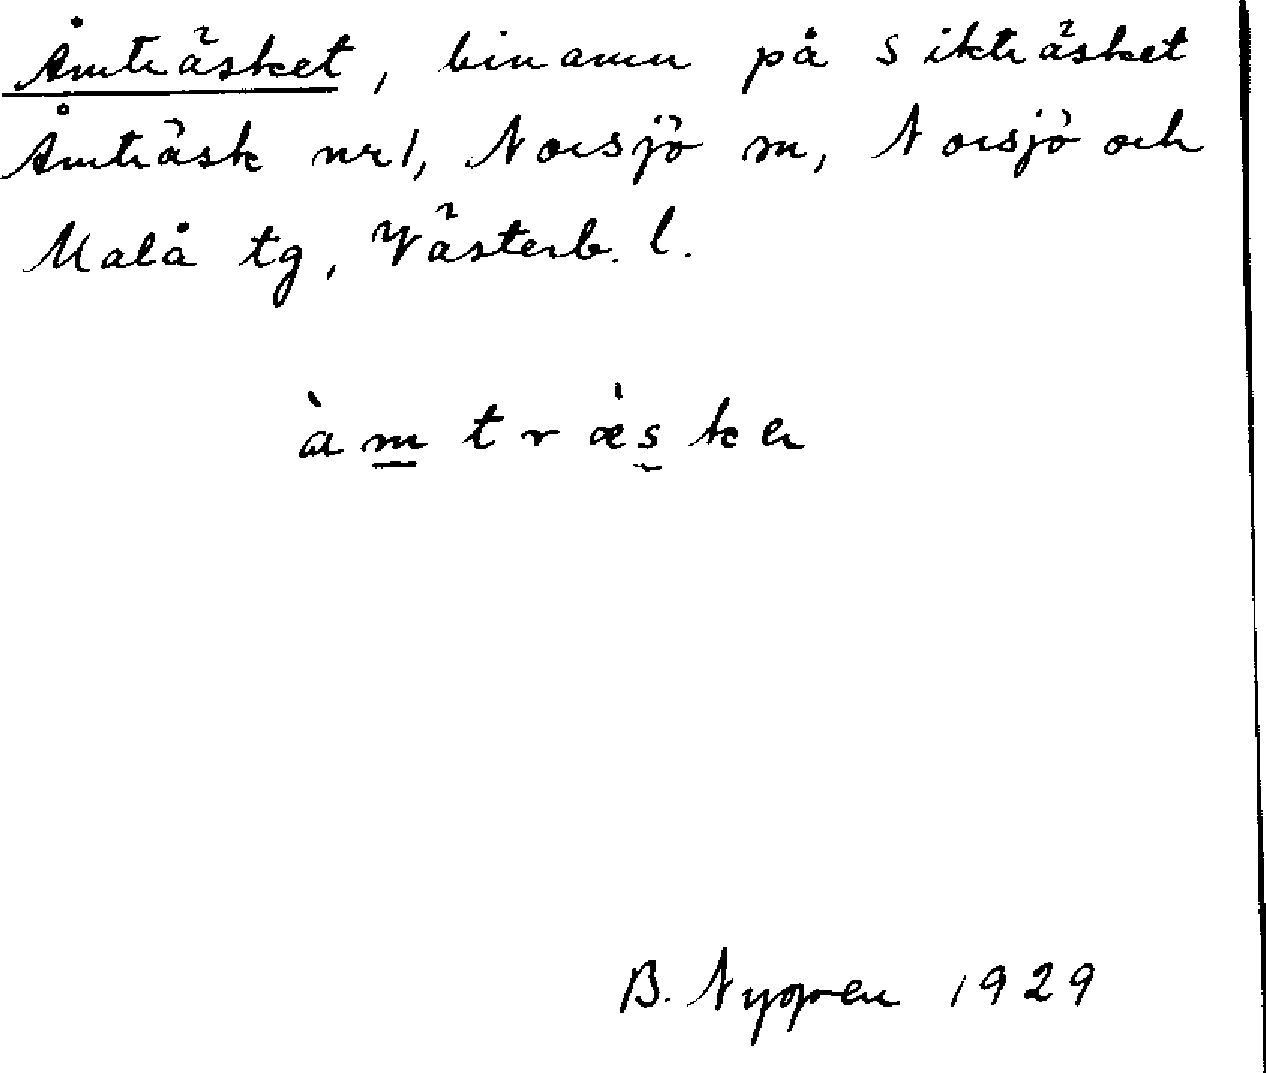 Åmträsket, binamn på Sikträsket
Åmträsk nr 1, Norsjö sn, Norsjö och
Malå tg, Västerb. l.
àmtræ̀ska
B. Nygren 1929